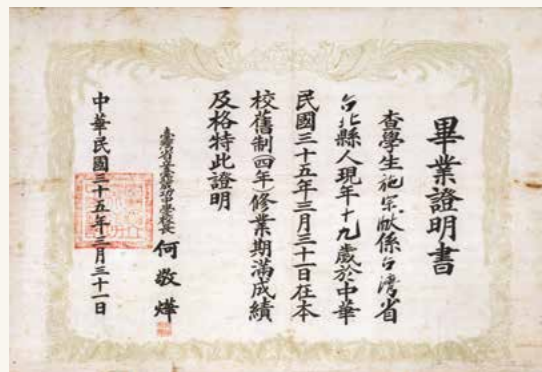 畢業證明書
查學生施宗猷係台灣省
台北縣人現年十九歲於中華
民國三十五年三月三十一日在本
校舊制(四年)修業期滿成績
及格特此證明
校長
何敬燁
中華民國三十五年三月三十一日